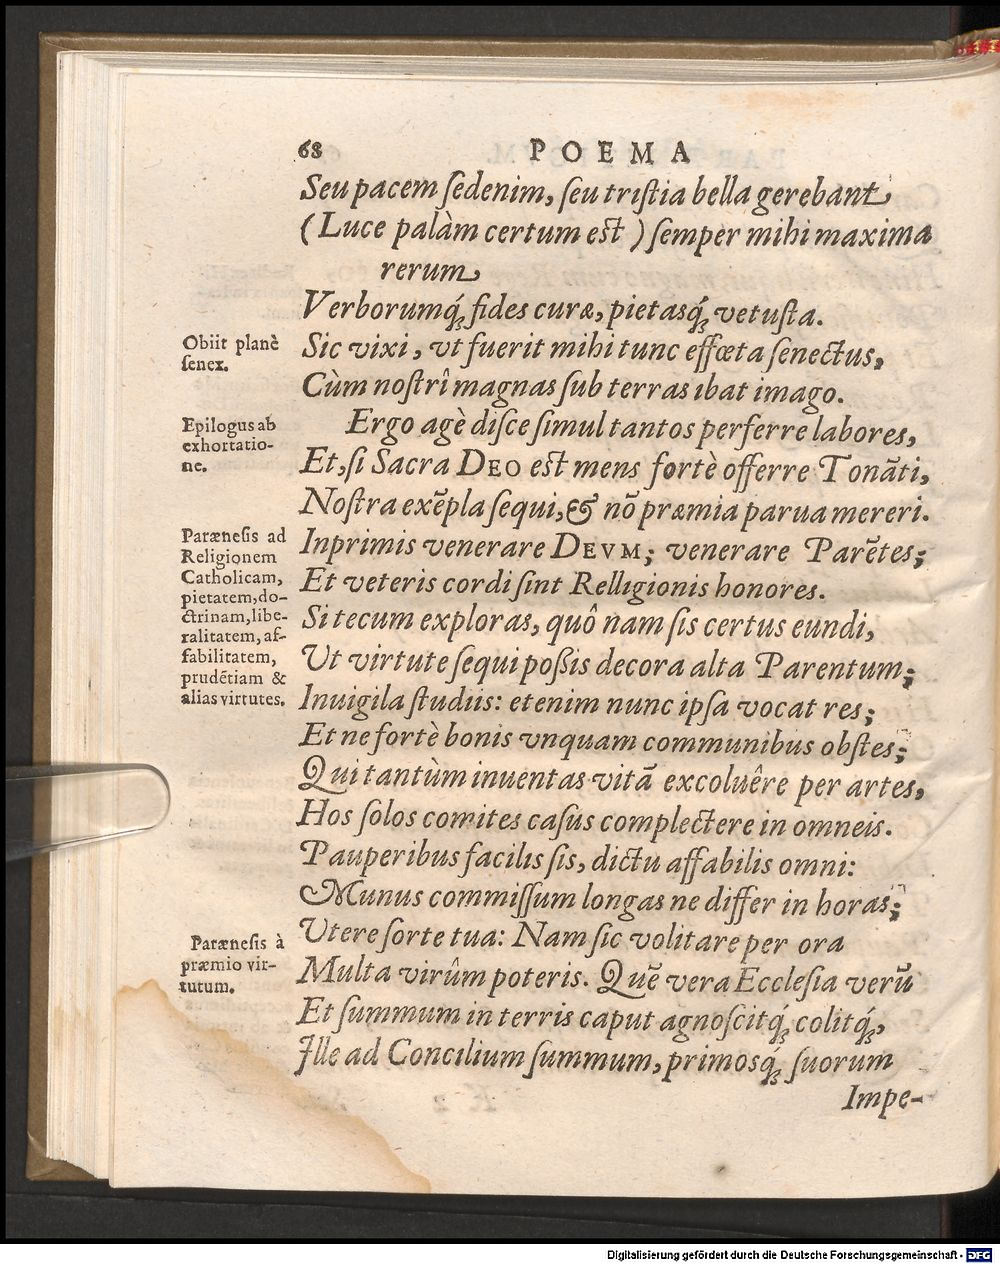 68 POEMA
Seu pacem ſedenim, ſeu triſtia bella gerebant
(Luce palàm certum eſt) ſemper mihi maxima
rerum
Verborumq́; fides curæ, pietasq́; vetuſta.
Obiit planè
ſenex.
Sic vixi, vt fuerit mihi tunc effœta ſenectus,
Cùm noſtrî magnas ſub terras ibat imago.
Epilogus ab
exhortatio-
ne.
Ergo agè diſce ſimul tantos perferre labores,
Et, ſi Sacra DEO eſt mens fortè offerre Tonāti,
Noſtra exēpla ſequi, & nō præmia parua mereri.
Parænesis ad
Religionem
Catholicam,
pietatem, do-
ctrinam, libe-
ralitatem, af-
fabilitatem,
prudētiam &
alias virtutes.
Inprimis venerare DEVM; venerare Parētes;
Et veteris cordi ſint Relligionis honores.
Si tecum exploras, quô nam ſis certus eundi,
Ut virtute ſequi poßis decora alta Parentum;
Inuigila ſtudiis: etenim nunc ipſa vocat res;
Et ne fortè bonis vnquam communibus obſtes;
Qui tantùm inuentas vitā excoluêre per artes,
Hos ſolos comites caſus complectere in omneis.
Pauperibus facilis ſis, dictu affabilis omni:
Munus commiſſum longas ne differ in horas;
Parænesis à
præmio vir-
tutum.
Utere ſorte tua: Nam ſic volitare per ora
Multa virûm poteris. Quē vera Eccleſia verū
Et ſummum in terris caput agnoſcitq́; colitq́;,
Ille ad Concilium ſummum, primosq́; ſuorum
Impe-
Digitalisierung gefördert durch die Deutsche Forschungsgemeinschaft - DFG